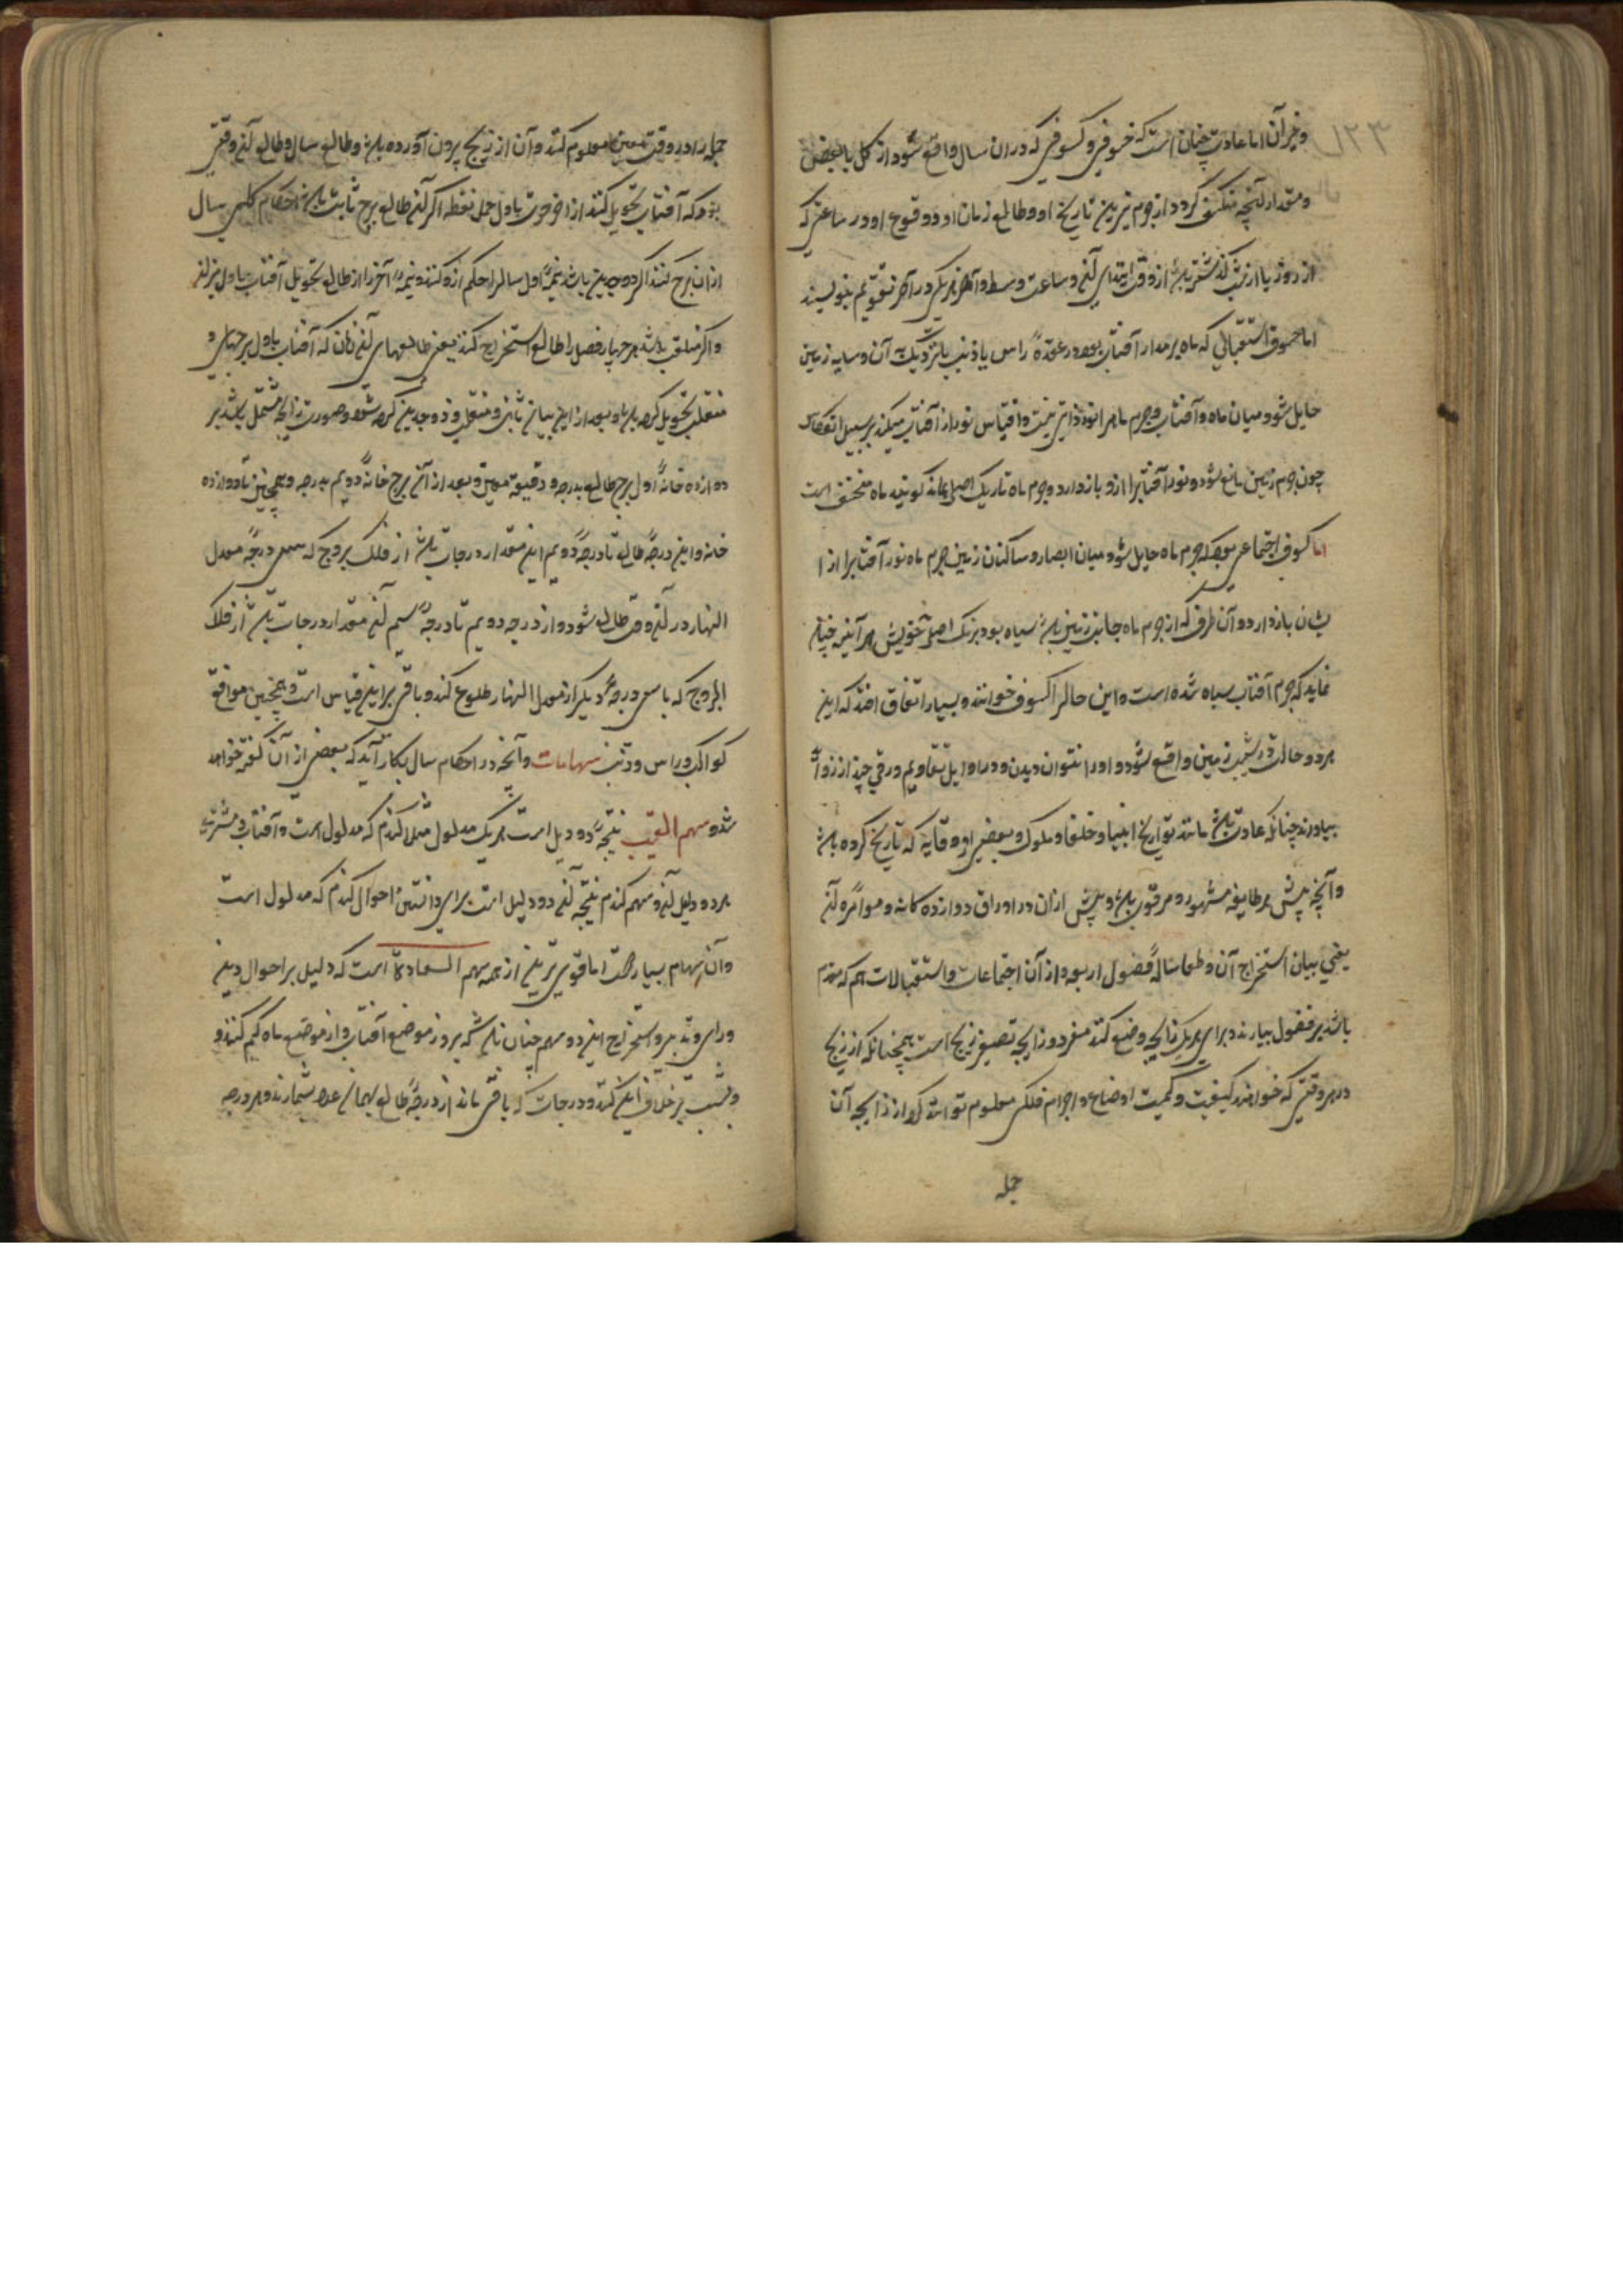 ۱۲۳
وغیر آن اما عادت چنان است که خسوفی و کسوفی که در ان سال واقع شود از کل یا بعضی
ومقدار آنچه منکسف کردد از جرم نیرین تاریخ او وطالع زمان او ووقوع او در ساعتی که
از روز یا از شب کذشته باشد از وقت ابتدای آن وساعت وسط وآخر هر یکی در آخر تقویم بنویسند
اما خسوف استقبالی که ماه بر مدار آفتاب بود در عقدهٔ راس یا ذنب یا نزدیک به آن وسایه زمین
حایل شود میان ماه وآفتاب وجرم ماه را نور ذاتی نیست واقتباس نور از آفتاب میکند بر سبیل انعکاس
چون جرم زمین مانع شود ونور آفتابرا ازو بازدارد وجرم ماه تاریک اصلی بماند کویند ماه منخسف است
اما کسوف اجتماعی بود که جرم ماه حایل شود میان ابصار وساکنان زمین جرم ماه نور آفتابرا از ا
یشان بازدارد وآن طرف که از جرم ماه جانب زمین باشد سیاه بود برنک اصلی خویش هر آینه چنان
نماید که جرم آفتاب سیاه شده است واین حالرا کسوف خوانند وبسیار اتفاق افتد که این
هر دو حالت در شیب زمین واقع شود و اورا نتوان دیدن ودر اوایل تقاویم ورقی چند از زواید
بیاورند چنانکه عادت باشد مانند تواریخ انبیا وخلفا وملوک وبعضی از وقایع که تاریخ کرده باشند
وآنچه پیش هر طایفه مشهور ومرقوم باشد وپیش ازان در اوراق دوازده کانه وموامرهٔ آن
یعنی بیان استخراج آن وطالع سالهٔ فصول اربعه واز آن اجتماعات واستقبالات هم که مقدم
باشد بر فصول بیارند وبرای هر یک زایجه وضع کنند مفرد وزایجه تصیغر زیج است همچنانکه از زیج
در هر وقتی که خواهند کیفیت وکمیت اوضاع واجرام فلکی معلوم توانند کرد از زایجه آن
جمله
جمله را در وقت معین معلوم کنند وآن از زیج بیرون آورده باشند وطالع سال وطالع آن وقتی
بود که آفتاب تحویل کند از آخر حوت باول حمل نقطه اکر آن طالع برج ثابت باشد احکام کلی سال
ازان برج کنند اکر ذوجسدین باشد نیمهٔ اول سالرا حکم ازو کنند ونیمهٔ آخر را از طالع تحویل آفتاب باول میزان
واکر منقلب باشد هر چهار فصل را طالع استخراج کنند یعنی طالعهای آن زمان که آفتاب باول برجهای
منقلب تحویل کرده باشد وبعد ازاین بیان ثابت ومنقلب وذوجسدین کرده شود وصورت زایجه مشتمل باشد بر
دوازده خانهٔ اول برج طالع بدرجه و دقیقه معین وبعد از آن برج خانهٔ دویم بدرجه وهمچنین تا دوازده
خانه واین درجهٔ طالع تا درجهٔ دویم این مقدار درجات باشد از فلک بروج که سی درجهٔ معدل
النهار در آن وقت طالع شود واز درجه دویم تا درجهٔ سیم آن مقدار درجات باشد از فلک
البروج که با سی درجهٔ دیکر از معدل النهار طلوع کند وباقی براین قیاس است وهمچنین مواقع
کواکب وراس وذنب سهامات وآنچه در احکام سال بکار آید که بعضی از آن کفته خواهد
شد وسهم الغیب نتیجهٔ دو دلیل است هر یک مدلول مثلا کندم که مدلول است وآفتاب ومشتری
هر دو دلیل آن وسهم کندم نتیجه آن دو دلیل است برای دانستن احوال کندم که مدلول است
وآن سهام بسیار است اما قوی ترین از همه سهم السعادة است که دلیل بر احوال دین
ورای وتدبیر واستخراج این دو سهم چنان باشد که بروز موضع آفتاب از موضع ماه کم کنند و
وبشب برخلاف این کنند ودرجات که باقی ماند از درجهٔ طالع بهمان عدد شمارند وهر درجه